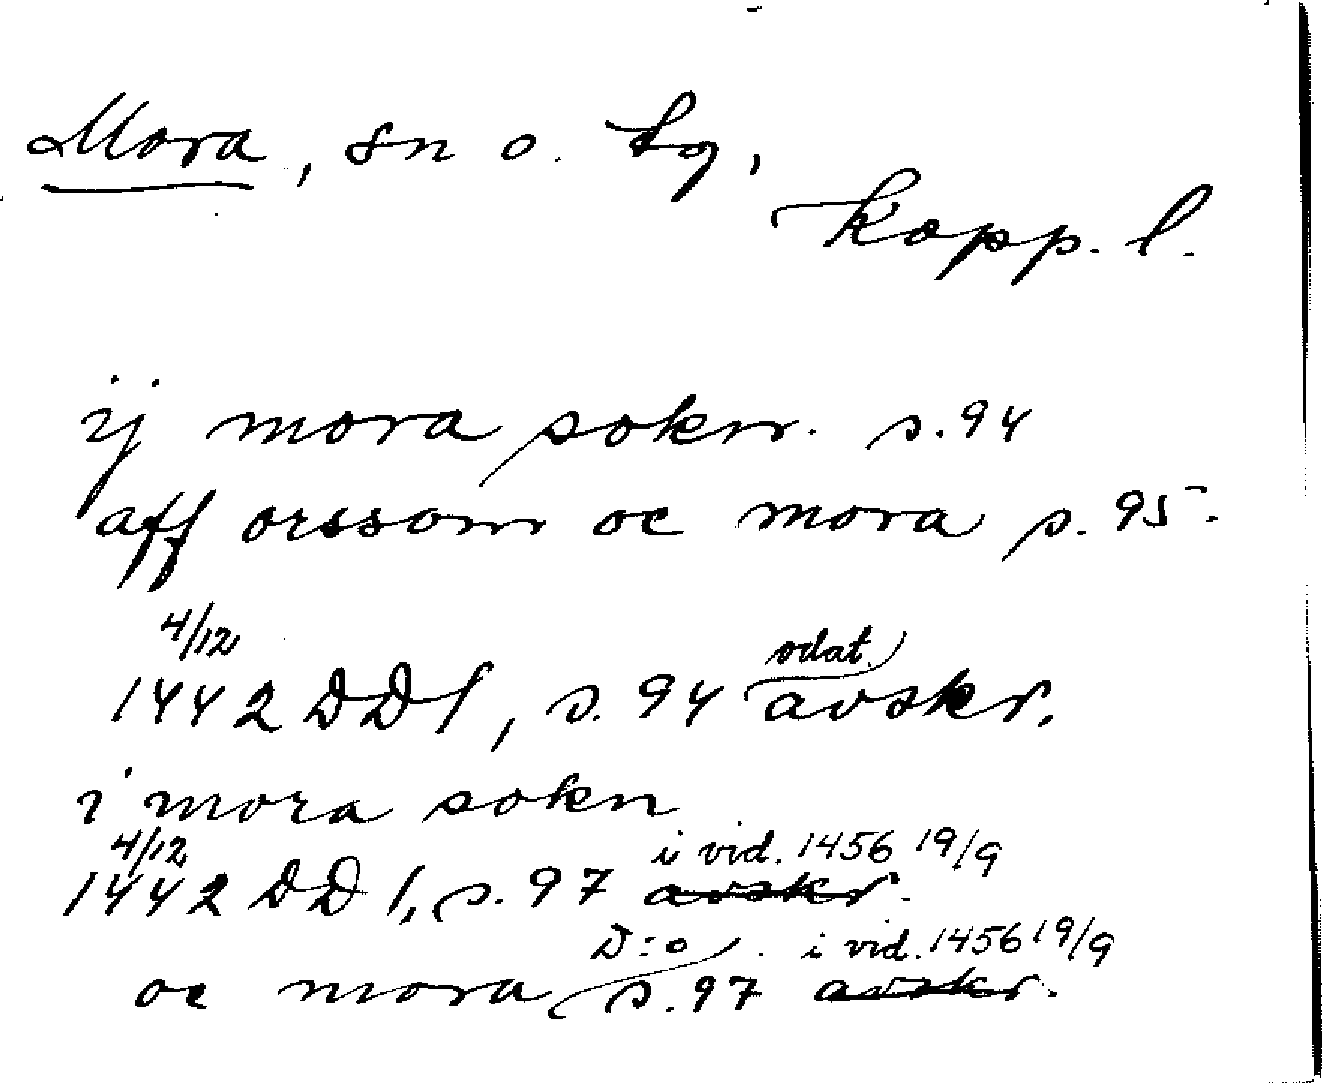 Mora, sn o. tg,
Kopp. l.
ij mora sokn. s. 94
aff orssom oc mora s. 95.
4/12
1442 DD 1, s. 94 odat. avskr.
i mora sokn
4/12 i vid. 1456 19/9
1442 DD 1, s. 97 avskr.
D:o i vid. 1456 19/9
oc mora s. 97 avskr.